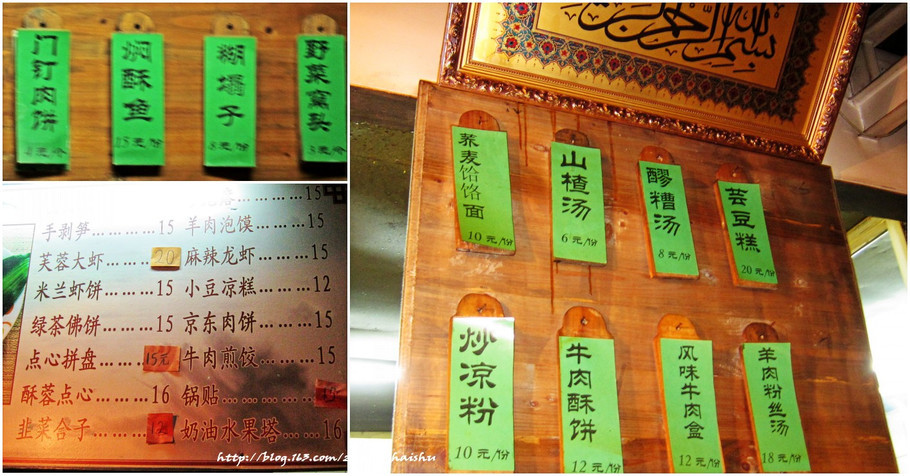 门钉肉饼
焖酥鱼
15元/份
糊塌子
8元/份
野菜窝头
3元/个
手剥笋………15
羊肉泡馍………15
芙蓉大虾………20
麻辣龙虾………15
米兰虾饼………15
小豆凉糕………12
绿茶佛饼………15
京东肉饼………15
点心拼盘………15元
牛肉煎饺………15
酥蓉点心………16
锅贴
韭菜合子………12
奶油水果塔………16
荞麦饸饹面
10元/份
山楂汤
6元/份
醪糟汤
8元/份
芸豆糕
20元/份
炒凉粉
10元/份
牛肉酥饼
12元/份
风味牛肉盒
12元/份
羊肉粉丝汤
18元/份